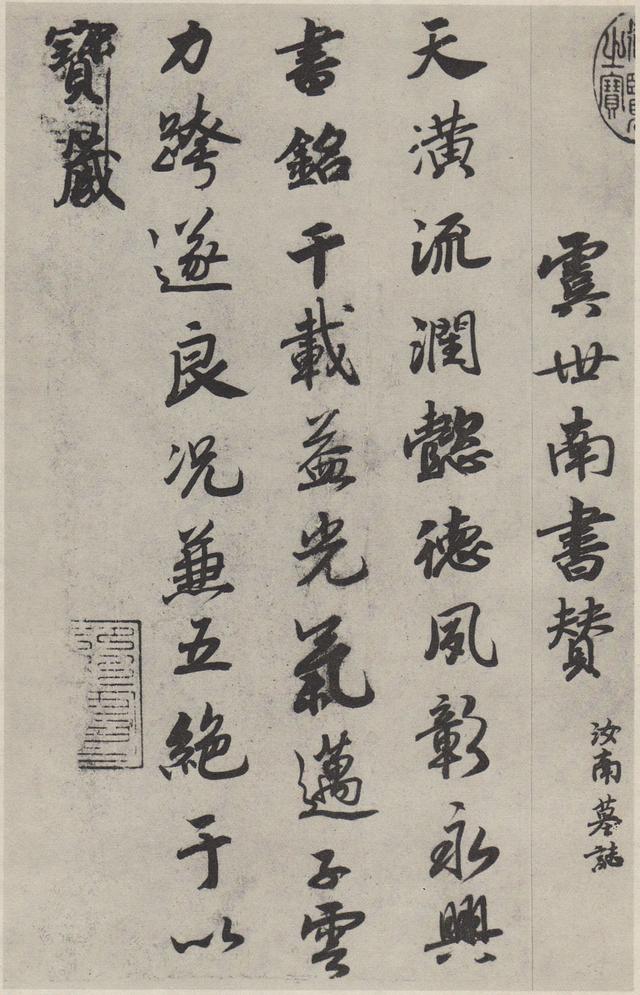 虞世南書賛
汝南墓誌
天潢流潤懿德夙彰永興
書銘千載益光氣邁子雲
力跨遂良况兼五絕于以
寶藏